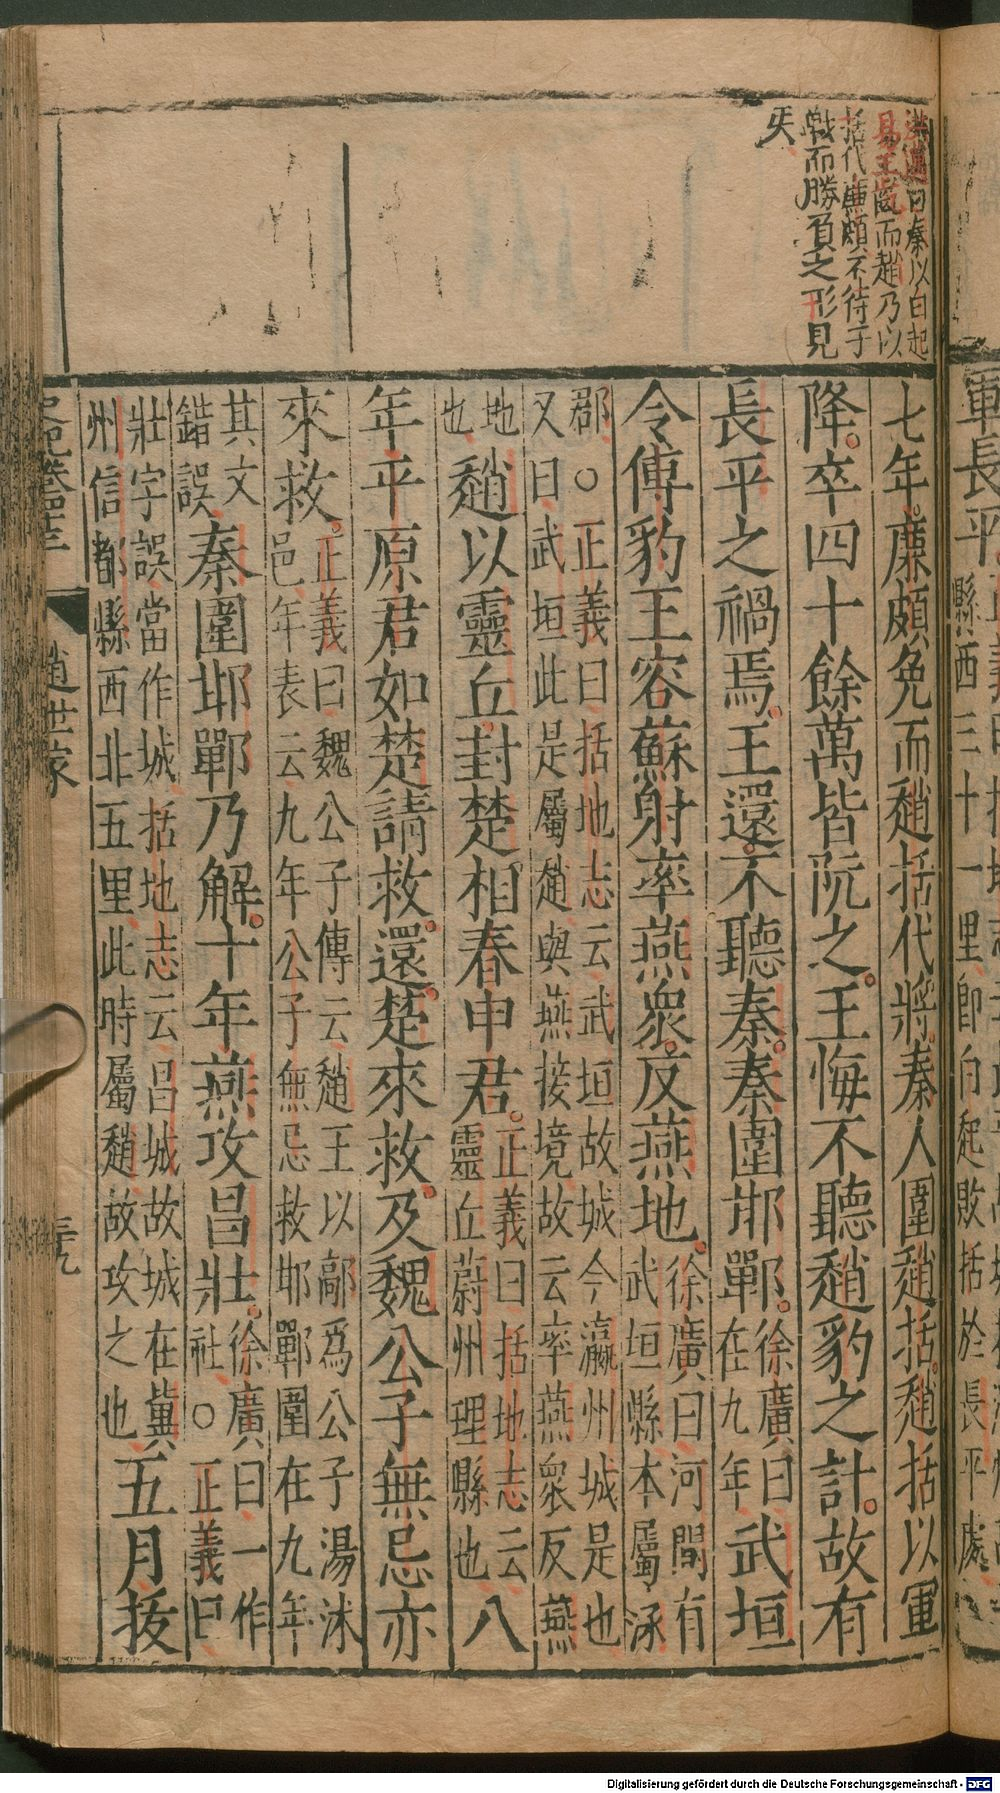 洪邁曰秦以白起
易王齕而趙乃以
括代廉頗不待于
戰而勝負之形見
矣
七年廉頗免而趙括代將秦人圍趙括趙括以軍
降卒四十餘萬皆阬之王悔不聽趙豹之計故有
長平之禍焉王還不聽秦秦圍邯鄲徐廣曰在九年武垣
令傅豹王容蘇射率燕衆反燕地徐廣曰河間有武垣縣本屬涿
郡○正義曰括地志云武垣故城今瀛州城是也
又曰武垣此是屬趙與燕接境故云率燕衆反燕
地也趙以靈丘封楚相春申君正義曰括地志云靈丘蔚州理縣也八
年平原君如楚請救還楚來救及魏公子無忌亦
來救正義曰魏公子傳云趙王以鄗爲公子湯沐邑年表云九年公子無忌救邯鄲圍在九年
其文錯誤秦圍邯鄲乃解十年燕攻昌壯徐廣曰一作社○正義曰
壯字誤當作城括地志云昌城故城在冀
州信都縣西北五里此時屬趙故攻之也五月拔
趙世家
Digitalisierung gefördert durch die Deutsche Forschungsgemeinschaft - DFG
軍長平
縣西三十一里即白起敗括於長平處